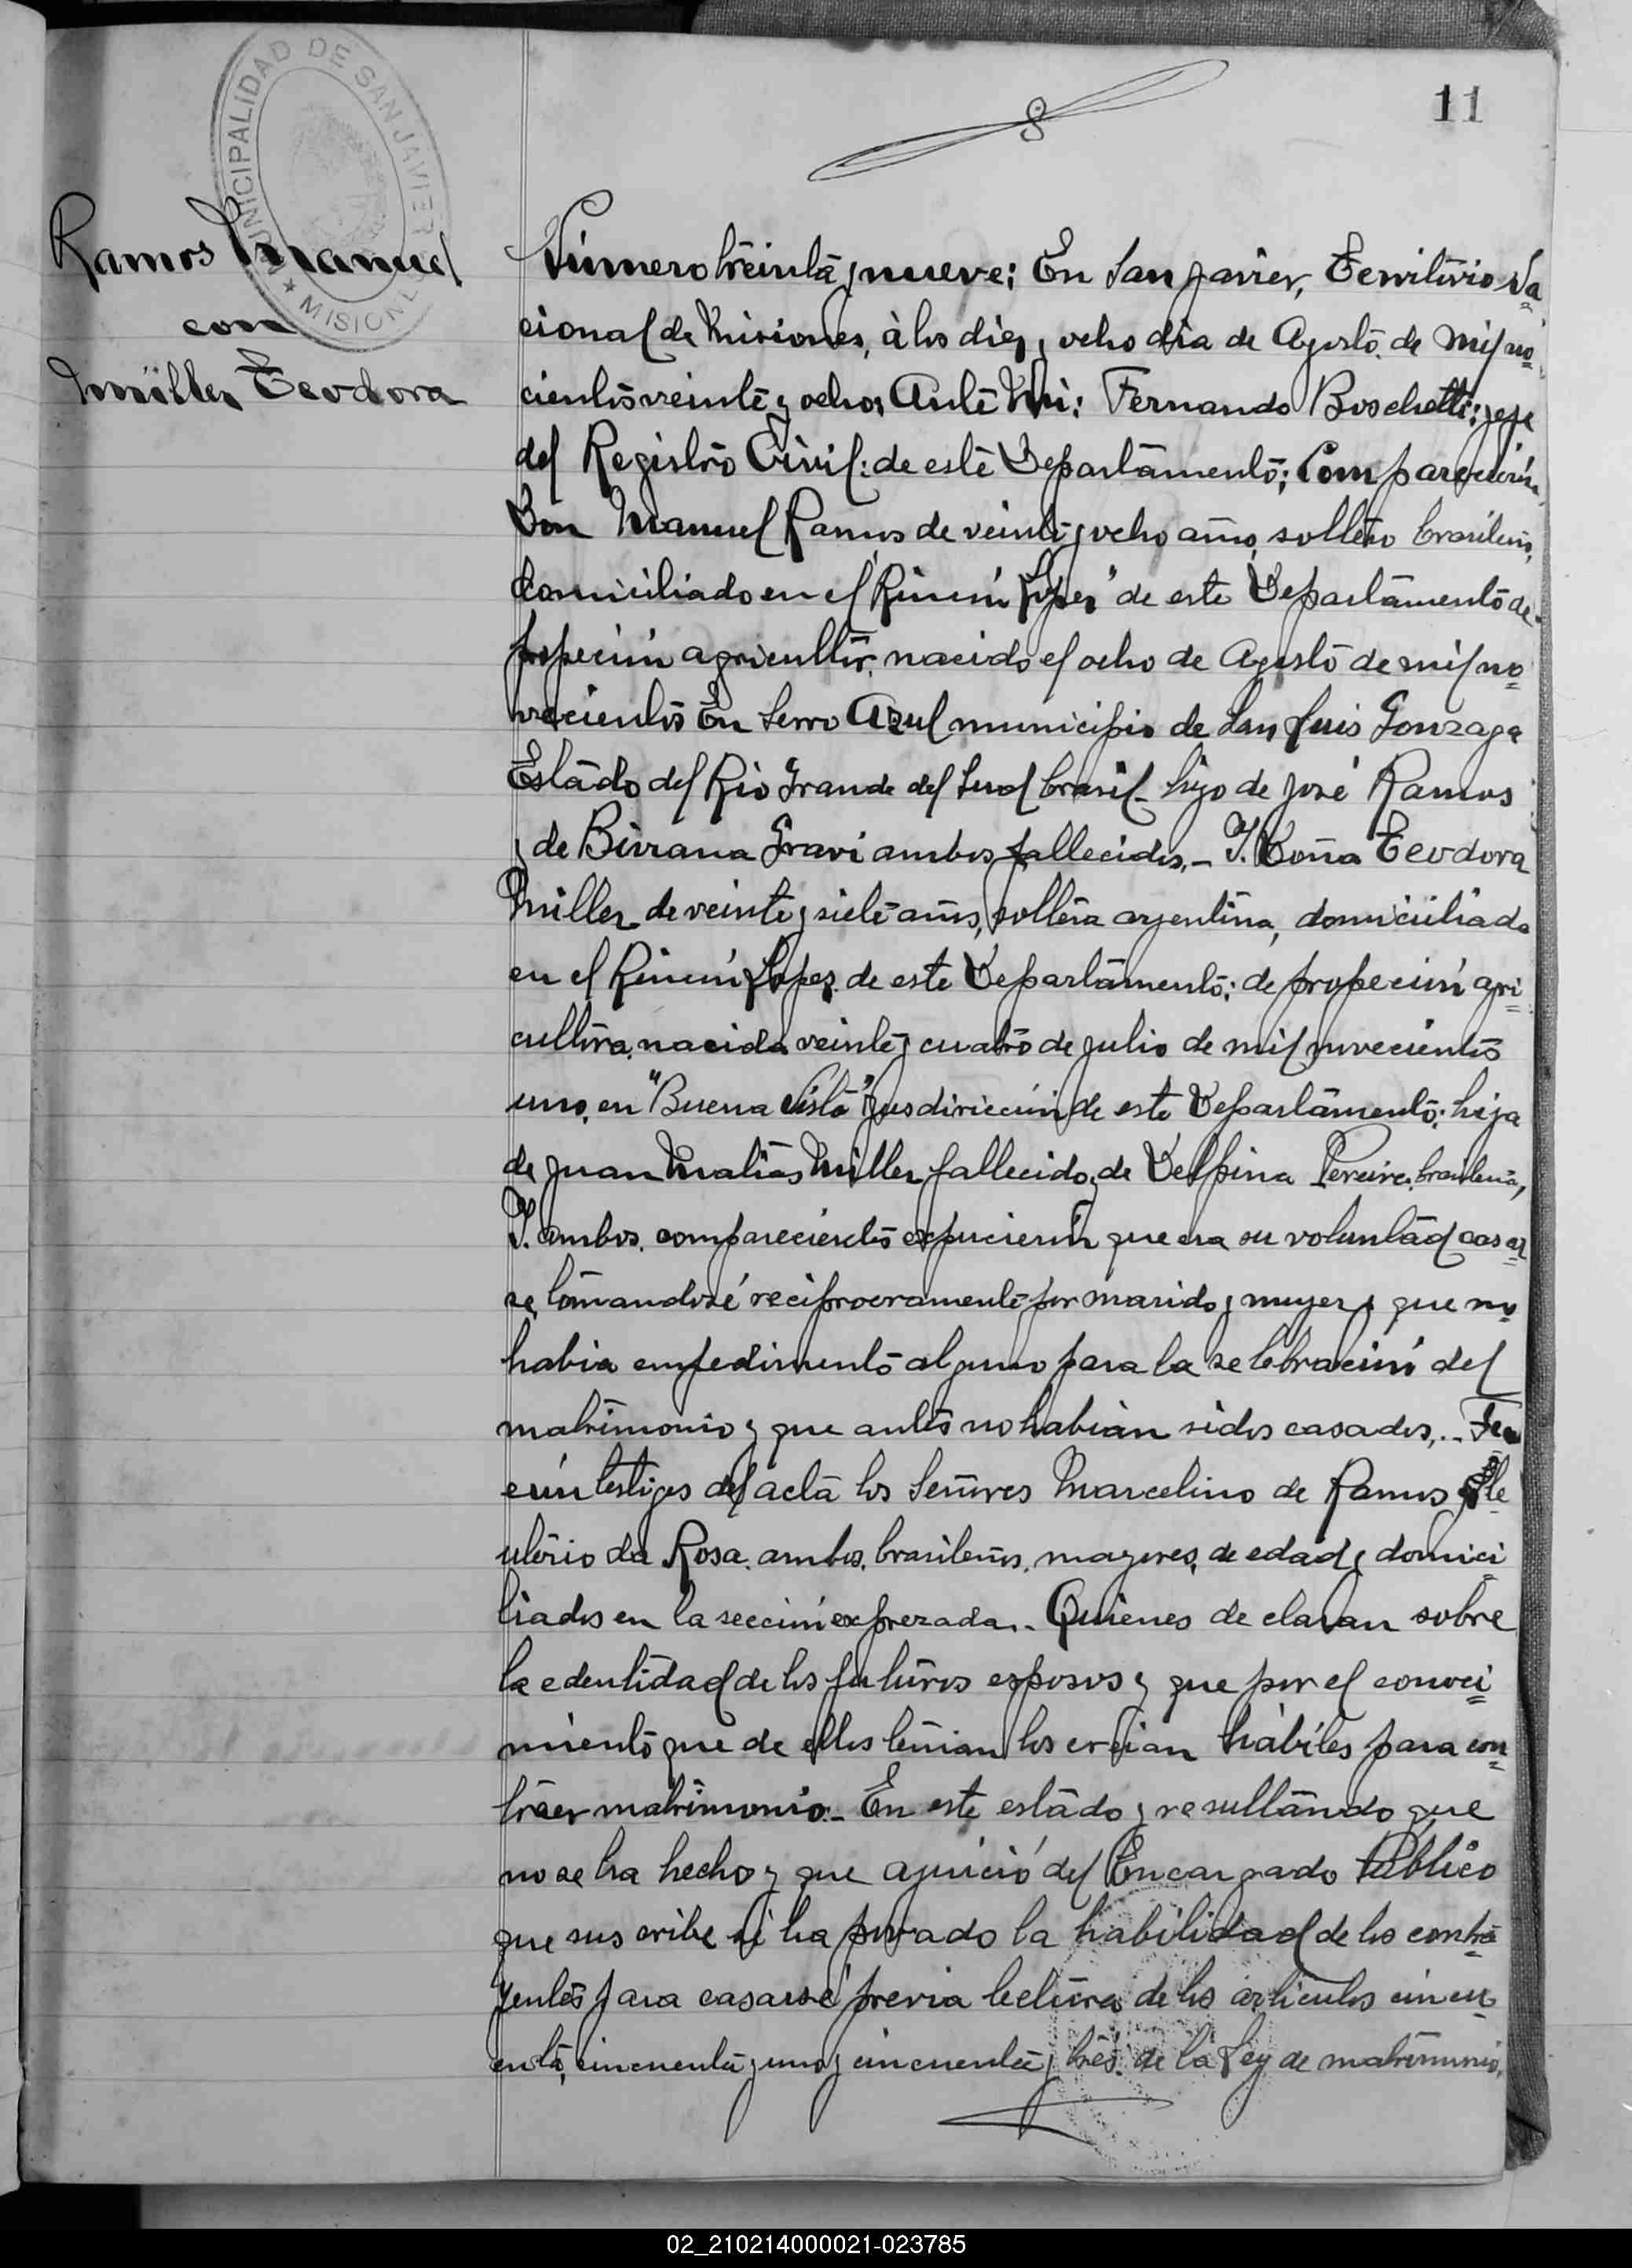 11
MUNICIPALIDAD DE SAN JAVIER
★ MISIONES
Ramos Manuel
con
Müller Teodora
Número treinta y nueve: En San Javier, Territorio Na
cional de Misiones, à los diez y ocho dia de Agosto de mil no
cientos veinte y ocho, Ante Mi: Fernando Boschetti: jefe
del Registro Civil: de este Departamento; Comparecierón
Don Manuel Ramos de veinte y ocho años, soltero brasileño,
domiciliado en el "Rincón López" de este Departamento de
profección agricultor, nacido el ocho de Agosto de mil no
vecientos En Serro Azul municipio de San Luis Gonzaga
Estado del Rio Grande del Sud brasil - hijo de José Ramos
y de Birrana Gravi ambos fallecidos. - Y. Doña Teodora
Miller de veinte y siete años, soltera argentina, domiciliada
en el Rincón López de este Departamento; de profeción agri
cultora, nacida veinte y cuatro de julio de mil novecientos
uno, en "Buena Vista" jusdiricción de este Departamento: hija
de Juan Matias Miller fallecido y de Delfina Pereira, brasileña,
Y. ambos comparecientes expucierón que era su voluntad casar
se, tomandosé reciprocramente por marido y mujer y que no
habia empedimento alguno para la selebración del
matrimonio y que antes no habian sidos casados, .- Fue
erón testigos del acta los Señores Marcelino de Ramos y Ele
uterio da Rosa, ambos, brasileños, mayores, de edad y domici
liados en la sección exprezada. - Quienes de claran sobre
la edentidad de los futuros esposos y que por el conoci
miento que de ellos tenian los creian hábiles para con
traer matrimonio. - En este estado y resultando que
no se ha hecho y que ajuició del Encargado Público
que sus cribe sé ha provado la habilidad de los contra
yentes para casarsé previa lectura de los articulos cincu
enta, cincuenta y uno y cincuenta y trés de la Ley de matrimonio,
02_210214000021-023785